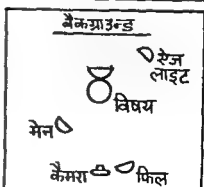 बैकग्राउन्ड
ऐज
लाइट
विषय
मेन
कैमरा
फिल